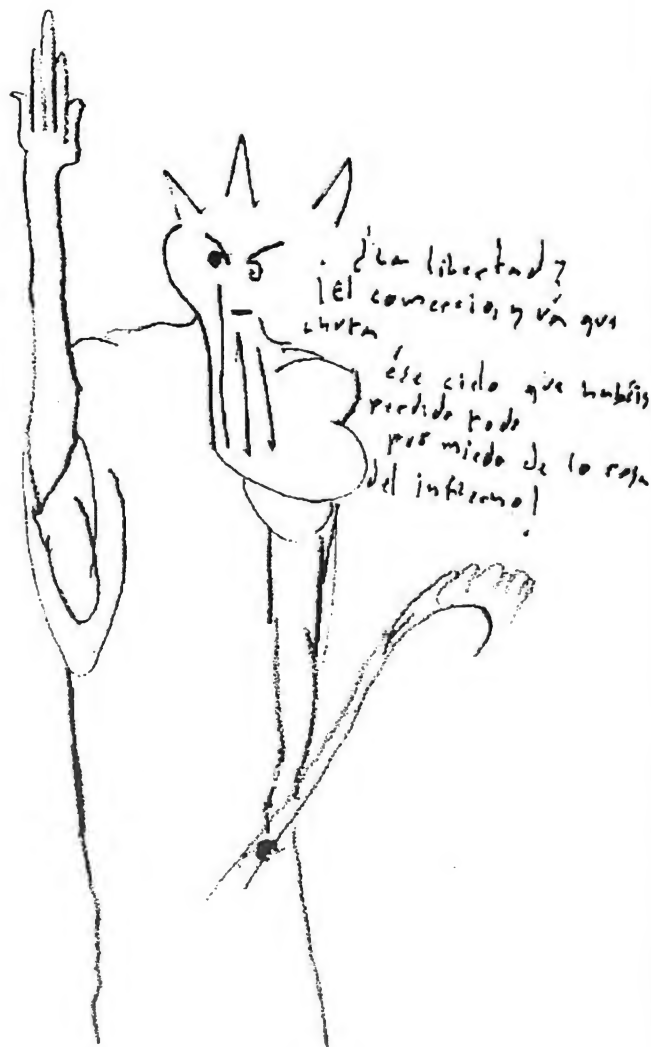 ¿La libertad?
¡El comercio, y va que
chuta
ése cielo que habéis
perdido todo
por miedo de la rosa
del infierno!